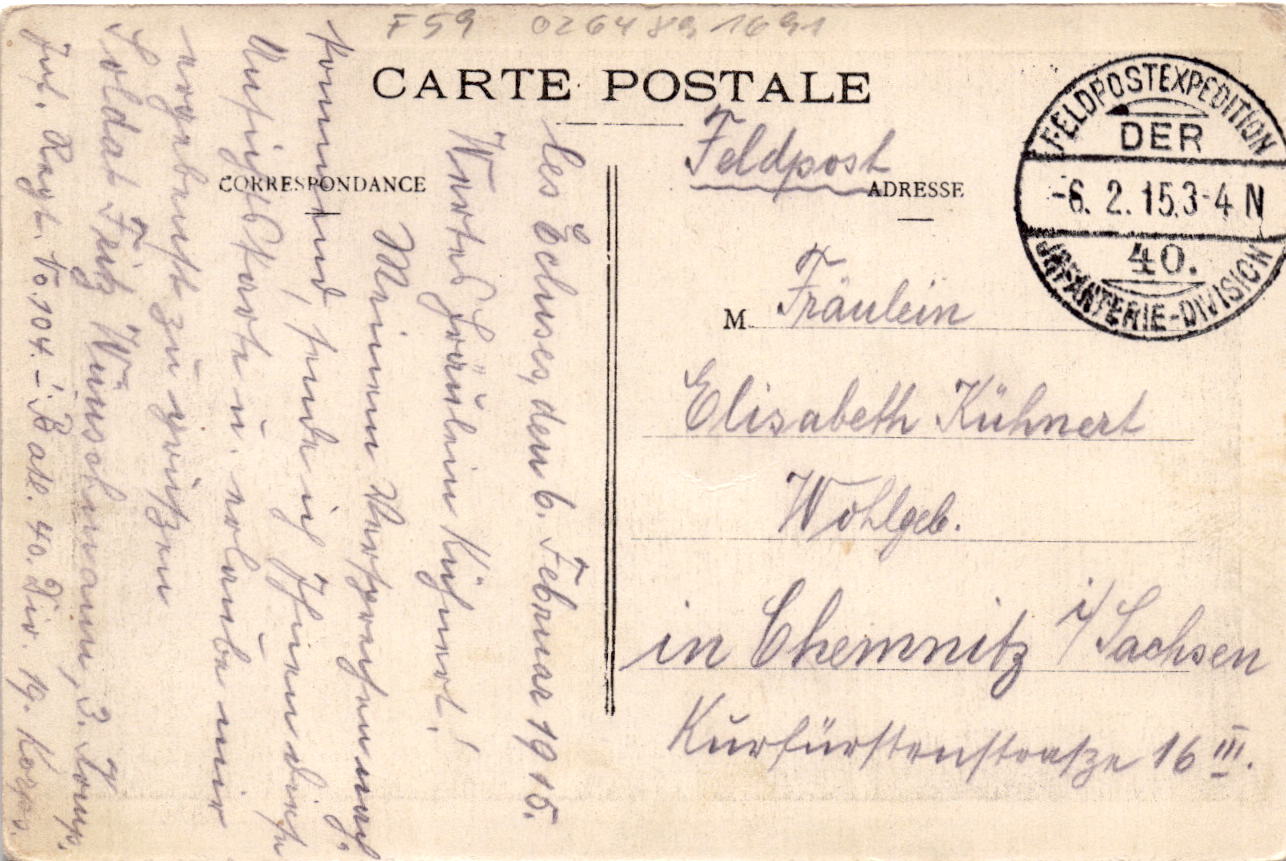 F59 0264891691
CARTE POSTALE
CORRESPONDANCE
ADRESSE
FELDPOSTEXPEDITION
DER
-6. 2. 15. 3-4 N
40.
INFANTERIE-DIVISION
Feldpost
M. Fräulein
Elisabeth Kühnert
Wohlgeb.
in Chemnitz i/Sachsen
Kurfürstenstraße 16 III.
les Ecluses, den 6. Februar 1915.
Wertes Fräulein Kühnert!
Meinem Versprechen nach
kommend, sende ich Ihnen diese
Ansichtskarte u. erlaube mir
ergebenst zu grüßen
Soldat Fritz Wünschmann, 3. Komp.
Inf. Regt. No. 104. I. Batl. 40. Div. 19. Korps.